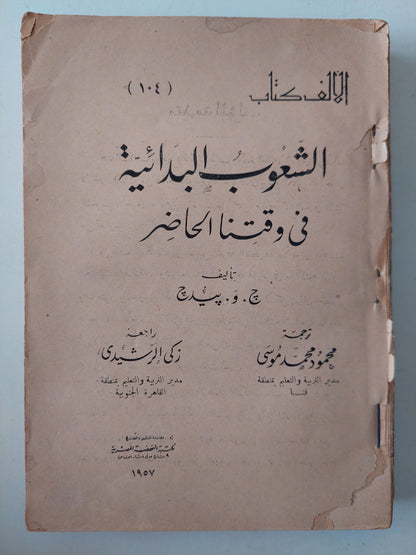 الألف كتاب
(١٠٤)
الشعوب البدائية
في وقتنا الحاضر
تأليف
ج . و . پيدج
ترجمة
محمود محمد موسى
مدير التربية والتعليم بمنطقة
قنا
راجعه
زكى الرشيدى
مدير التربية والتعليم بمنطقة
القاهرة الجنوبية
مكتبة النهضة المصرية
١٩٥٧